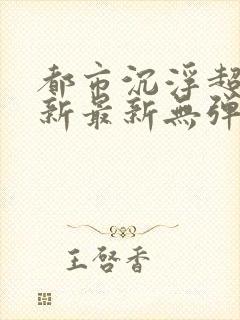 都市沉浮超
新最新無弹
王啓香